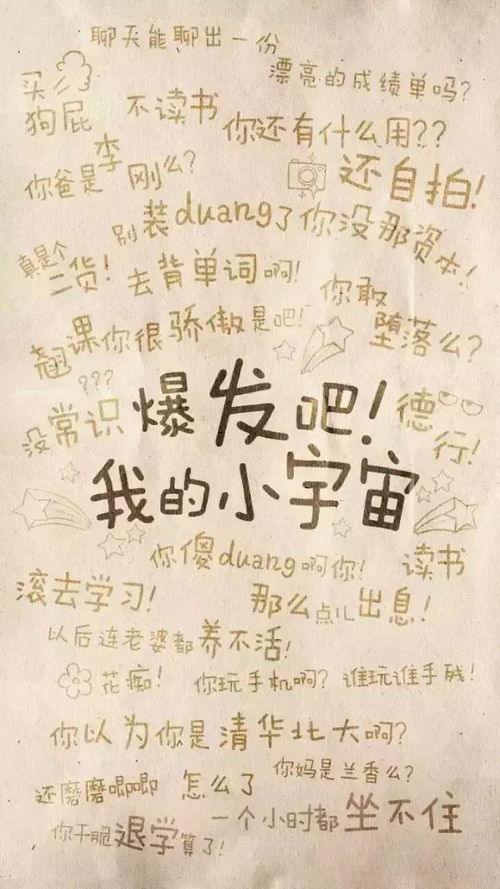 聊天能聊出一份
漂亮的成绩单吗?
买
狗屁
不读书
你还有什么用??
你爸是李刚么?
还自拍!
别装duang了你没那资本!
真是个
二货!
去背单词啊!
你敢
堕落么?
翘课你很骄傲是吧!
???
没常识
爆发吧!
德行!
我的小宇宙
你傻duang啊你!
读书
滚去学习!
那么点儿出息!
以后连老婆都养不活!
花痴!
你玩手机啊?谁玩谁手残!
你以为你是清华北大啊?
你妈是兰香么?
还磨磨唧唧
怎么了
一个小时都坐不住
你干脆退学算了!